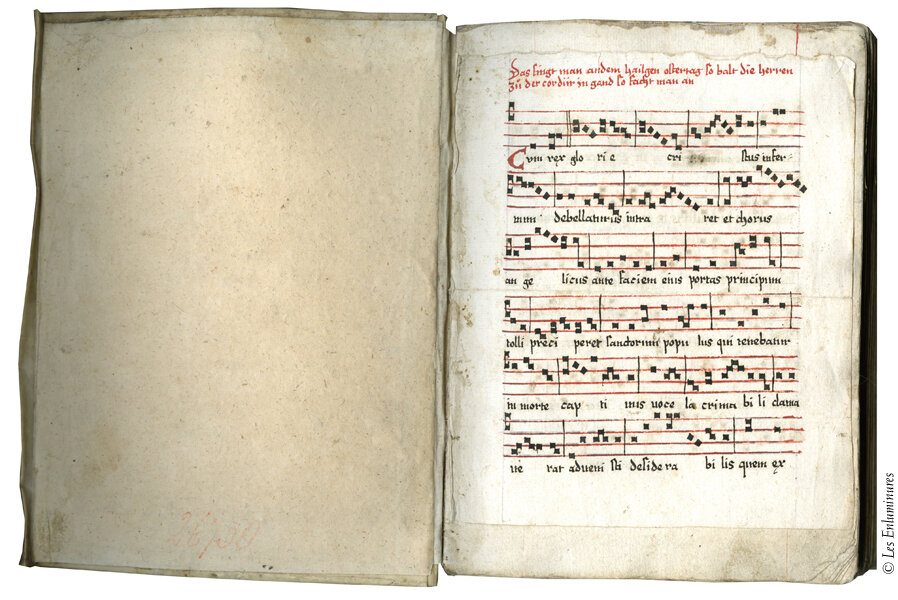 Das singt man an dem hailgen ostertag so balt die herren
zu der cordur in gand so facht man an
Cum rex glo ri e cri stus infer
num debellaturus intra ret et chorus
an ge licus ante faciem eius portas principum
tolli preci peret sanctorum popu lus qui tenebatur
in morte cap ti uus uoce la crima bi li clama
ue rat adveni sti desidera bi lis quem ex
© Les Enluminures